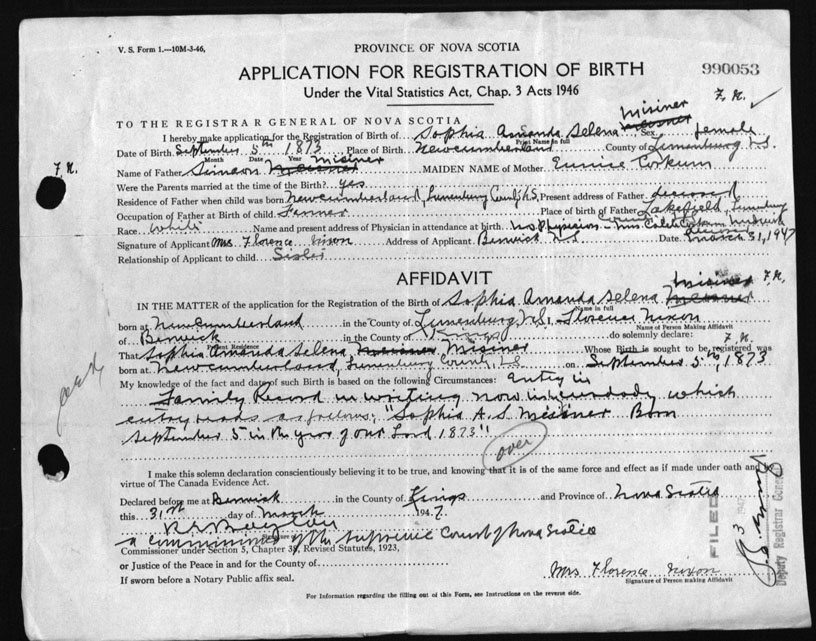 V. S. Form 1.—10M-3-46,
PROVINCE OF NOVA SCOTIA
APPLICATION FOR REGISTRATION OF BIRTH
990053
Under the Vital Statistics Act, Chap. 3 Acts 1946
F. N.
TO THE REGISTRAR GENERAL OF NOVA SCOTIA
Misiner
I hereby make application for the Registration of Birth of Sophia Amanda Selena Sex female
Print Name in full
Date of Birth September 5th 1873 Place of Birth Newcumberland County of Lunenburg N.S.
Month Date Year
F. N.
Misiner
Name of Father Simeon MAIDEN NAME of Mother Eunice Corkum
Were the Parents married at the time of the Birth? yes
Residence of Father when child was born Newcumberland, Lunenburg County N.S. Present address of Father deceased
Occupation of Father at Birth of child Farmer Place of birth of Father Lakefield, Lunenburg
Race White Name and present address of Physician in attendance at birth no Physician - Mrs. Caleb Corkum Midwife
deceased
Signature of Applicant Mrs. Florence Nixon Address of Applicant Berwick N.S. Date March 31, 1947
Relationship of Applicant to child Sister
AFFIDAVIT
Misiner F. N.
IN THE MATTER of the application for the Registration of Birth of Sophia Amanda Selena
Name in full
born at Newcumberland in the County of Lunenburg N.S. I, Florence Nixon
Name of Person Making Affidavit
of Berwick in the County of Kings do solemnly declare:
Present Residence
F. N.
That Sophia Amanda Selena Misiner Whose Birth is sought to be registered was
born at Newcumberland, Lunenburg County, N.S. on September 5th, 1873
My knowledge of the fact and date of such Birth is based on the following Circumstances: Entry in
Family Record in writing now in custody which
entry reads as follows: "Sophia A. S. Misiner Born
September 5 in the year of our Lord 1873"
over
I make this solemn declaration conscientiously believing it to be true, and knowing that it is of the same force and effect as if made under oath and by
virtue of The Canada Evidence Act.
Declared before me at Berwick in the County of Kings and Province of Nova Scotia
this 31st day of March 1947.
a commissioner of the Supreme Court of Nova Scotia
Commissioner under Section 5, Chapter 38, Revised Statutes, 1923,
or Justice of the Peace in and for the County of
If sworn before a Notary Public affix seal.
Mrs Florence Nixon
Signature of Person making Affidavit
FILED
Deputy Registrar General
For Information regarding the filling out of this Form, see Instructions on the reverse side.